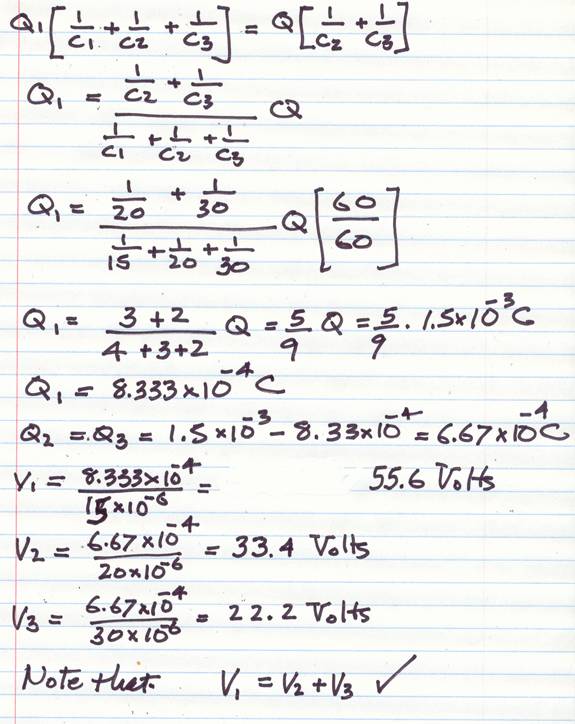 Q1 [1/C1 + 1/C2 + 1/C3] = Q [1/C2 + 1/C3]
Q1 = (1/C2 + 1/C3) / (1/C1 + 1/C2 + 1/C3) Q
Q1 = (1/20 + 1/30) / (1/15 + 1/20 + 1/30) Q [60/60]
Q1 = (3 + 2) / (4 + 3 + 2) Q = 5/9 Q = 5/9 · 1.5×10⁻³ C
Q1 = 8.333×10⁻⁴ C
Q2 = Q3 = 1.5×10⁻³ - 8.33×10⁻⁴ = 6.67×10⁻⁴ C
V1 = 8.333×10⁻⁴ / 15×10⁻⁶ = 55.6 Volts
V2 = 6.67×10⁻⁴ / 20×10⁻⁶ = 33.4 Volts
V3 = 6.67×10⁻⁴ / 30×10⁻⁶ = 22.2 Volts
Note that. V1 = V2 + V3 ✓